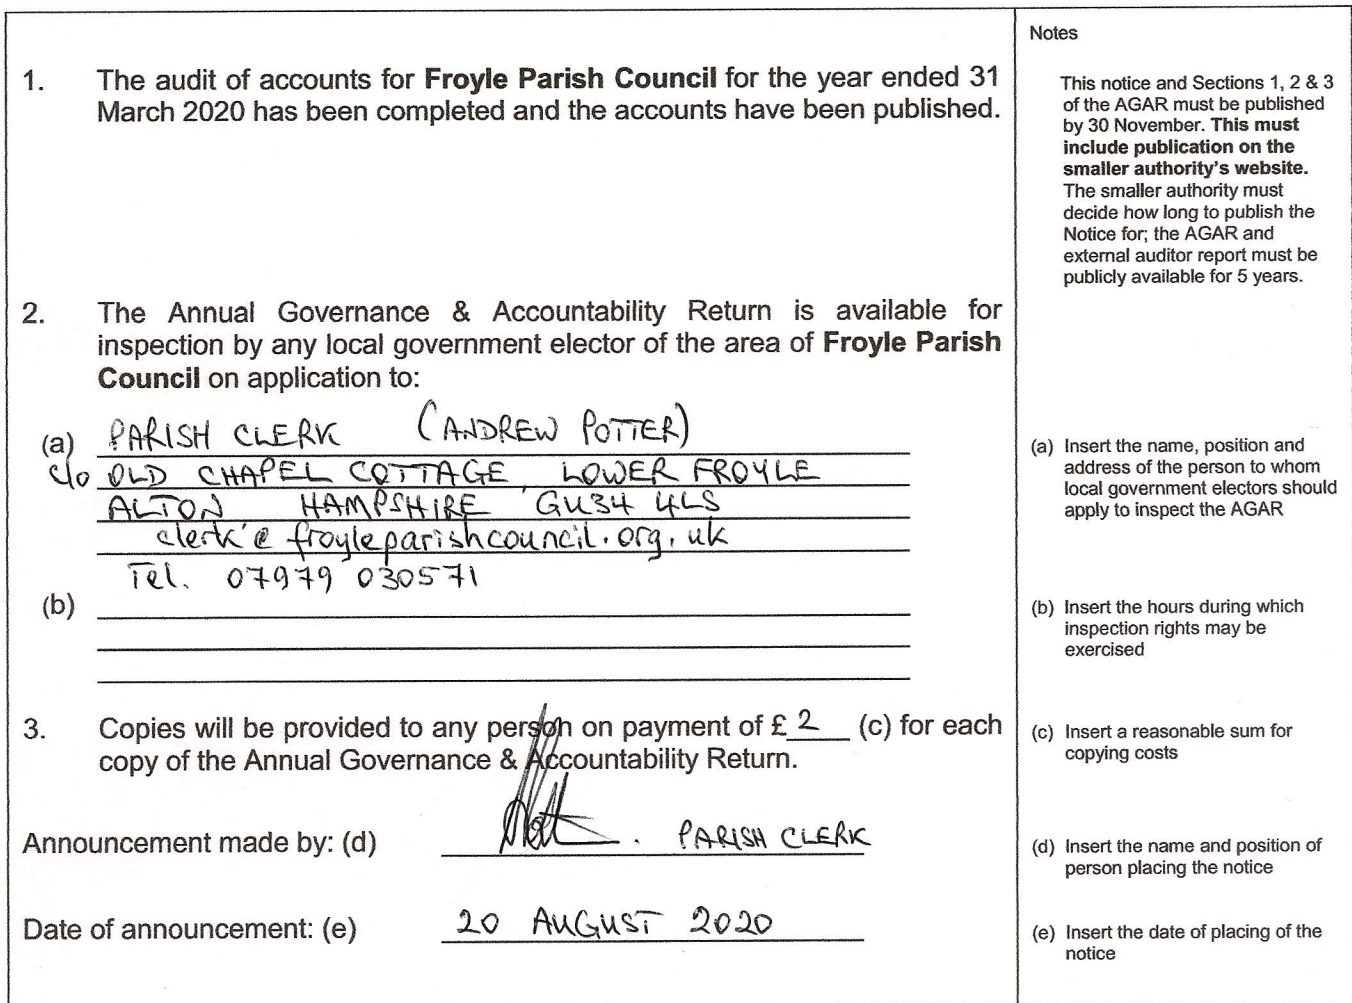 1. The audit of accounts for Froyle Parish Council for the year ended 31
March 2020 has been completed and the accounts have been published.
2. The Annual Governance & Accountability Return is available for
inspection by any local government elector of the area of Froyle Parish
Council on application to:
(a) PARISH CLERK (ANDREW POTTER)
c/o OLD CHAPEL COTTAGE, LOWER FROYLE
ALTON HAMPSHIRE GU34 4LS
clerk@froyleparishcouncil.org.uk
Tel. 07979 030571
(b)
3. Copies will be provided to any person on payment of £ 2 (c) for each
copy of the Annual Governance & Accountability Return.
Announcement made by: (d) . PARISH CLERK
Date of announcement: (e) 20 AUGUST 2020
Notes
This notice and Sections 1, 2 & 3
of the AGAR must be published
by 30 November. This must
include publication on the
smaller authority's website.
The smaller authority must
decide how long to publish the
Notice for; the AGAR and
external auditor report must be
publicly available for 5 years.
(a) Insert the name, position and
address of the person to whom
local government electors should
apply to inspect the AGAR
(b) Insert the hours during which
inspection rights may be
exercised
(c) Insert a reasonable sum for
copying costs
(d) Insert the name and position of
person placing the notice
(e) Insert the date of placing of the
notice